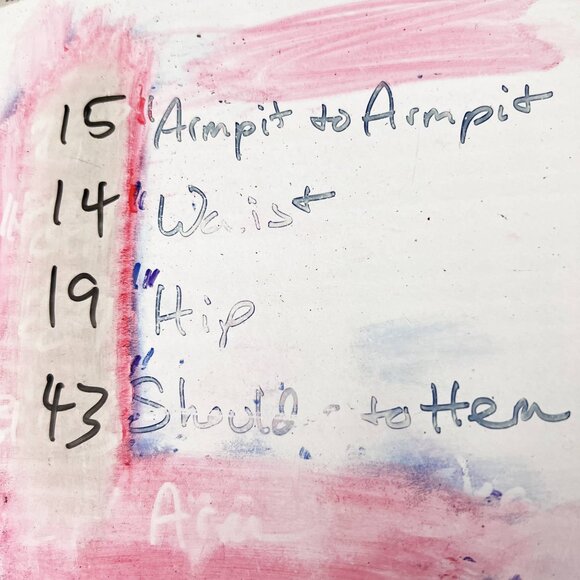 15" Armpit to Armpit
14" Waist
19" Hip
43" to Hem
" Arm